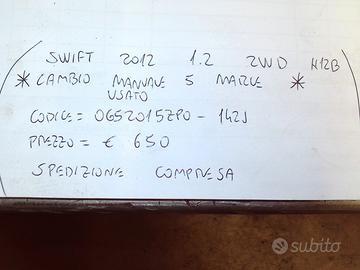 SWIFT 2012 1.2 2WD K12B
* CAMBIO MANUALE 5 MARCE *
USATO
CODICE = 0652015ZP0 - 142J
PREZZO = € 650
SPEDIZIONE COMPRESA
subito